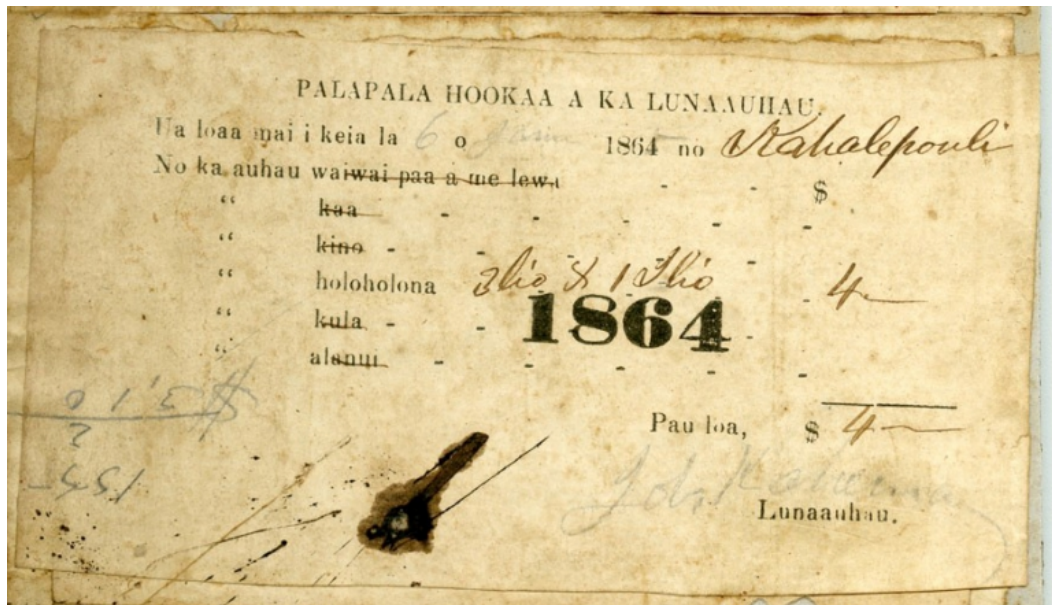 PALAPALA HOOKAA A KA LUNAAUHAU.
Ua loaa mai i keia la 6 o 1864 no Kahalepouli
No ka auhau waiwai paa a me lewa - - $
“ kaa - - - - -
“ kino - - - -
“ holoholona 3 lio & 1 Ilio - 4—
“ kula - - - -
1864
“ alanui - - - - - -
Pau loa, $ 4—
Lunaauhau.
$3,10
2